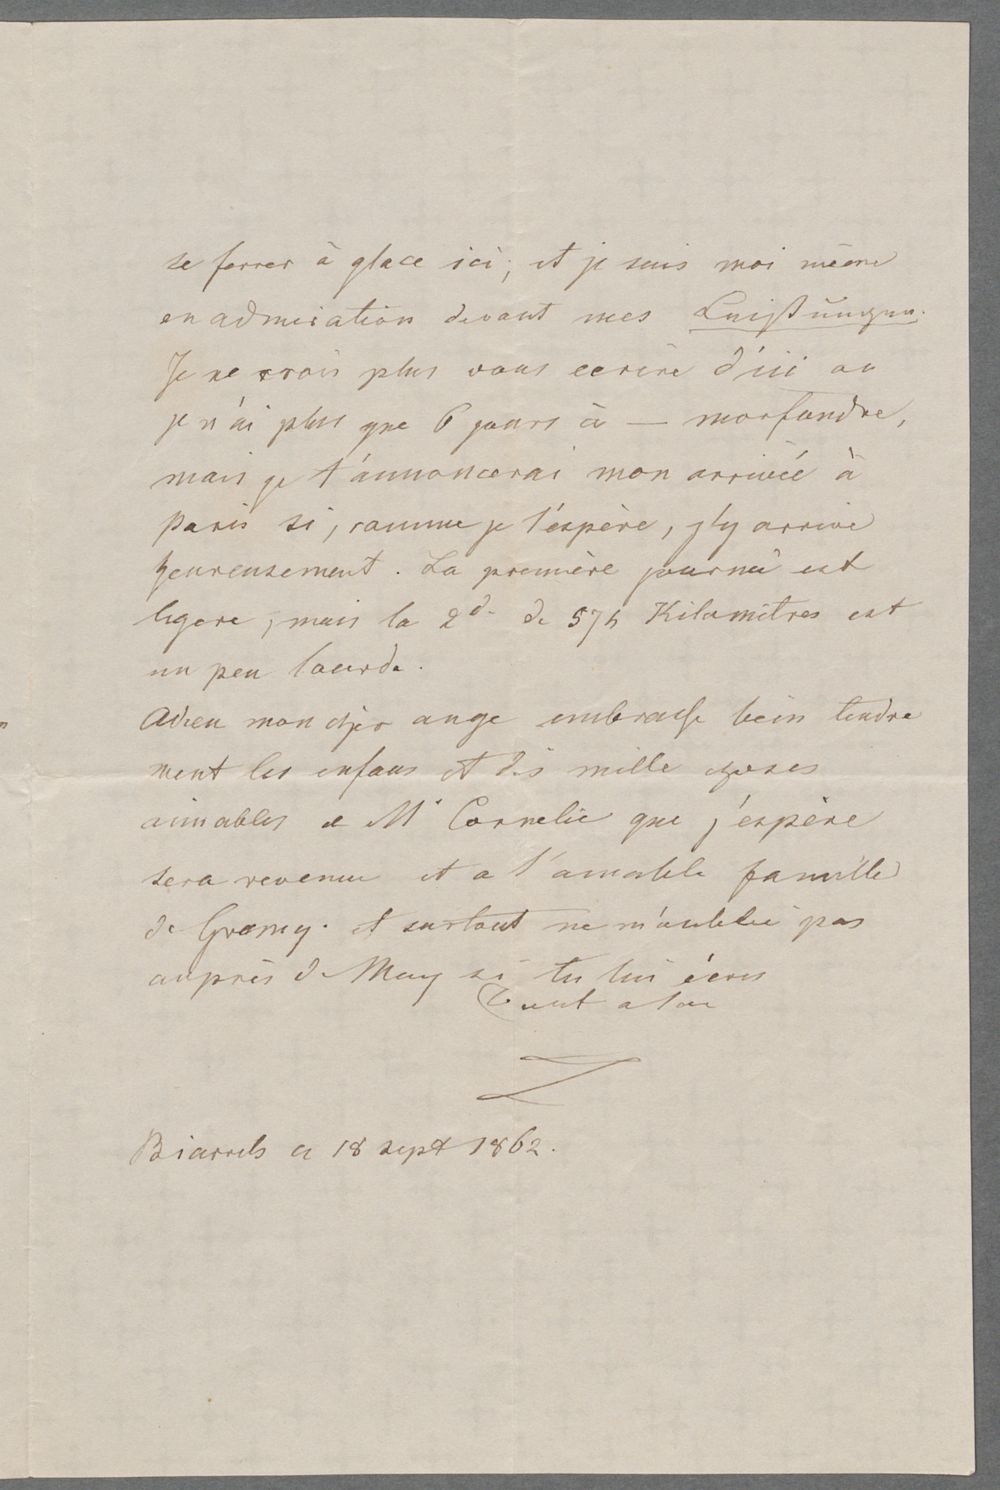 se ferrer à glace ici; et je suis moi même
en admiration devant mes Leistungen.
Je ne crois plus vous ecrire d'ici ou
je n'ai plus que 6 jours à — morfondre,
mais je t'annoncerai mon arrivée à
Paris si, comme je l'espère, j'y arrive
heureusement. La première journée est
legere, mais la 2de de 574 Kilomètres est
un peu lourde.
Adieu mon cher ange embrasse bien tendre
ment les enfans et dis mille choses
aimables a Me Cornelie que j'espère
sera revenue et a l'amable famille
de Gramy. et surtout ne m'oublie pas
auprès de Mary si tu lui écris
Tout a toi
Biarrits ce 18 sept 1862.